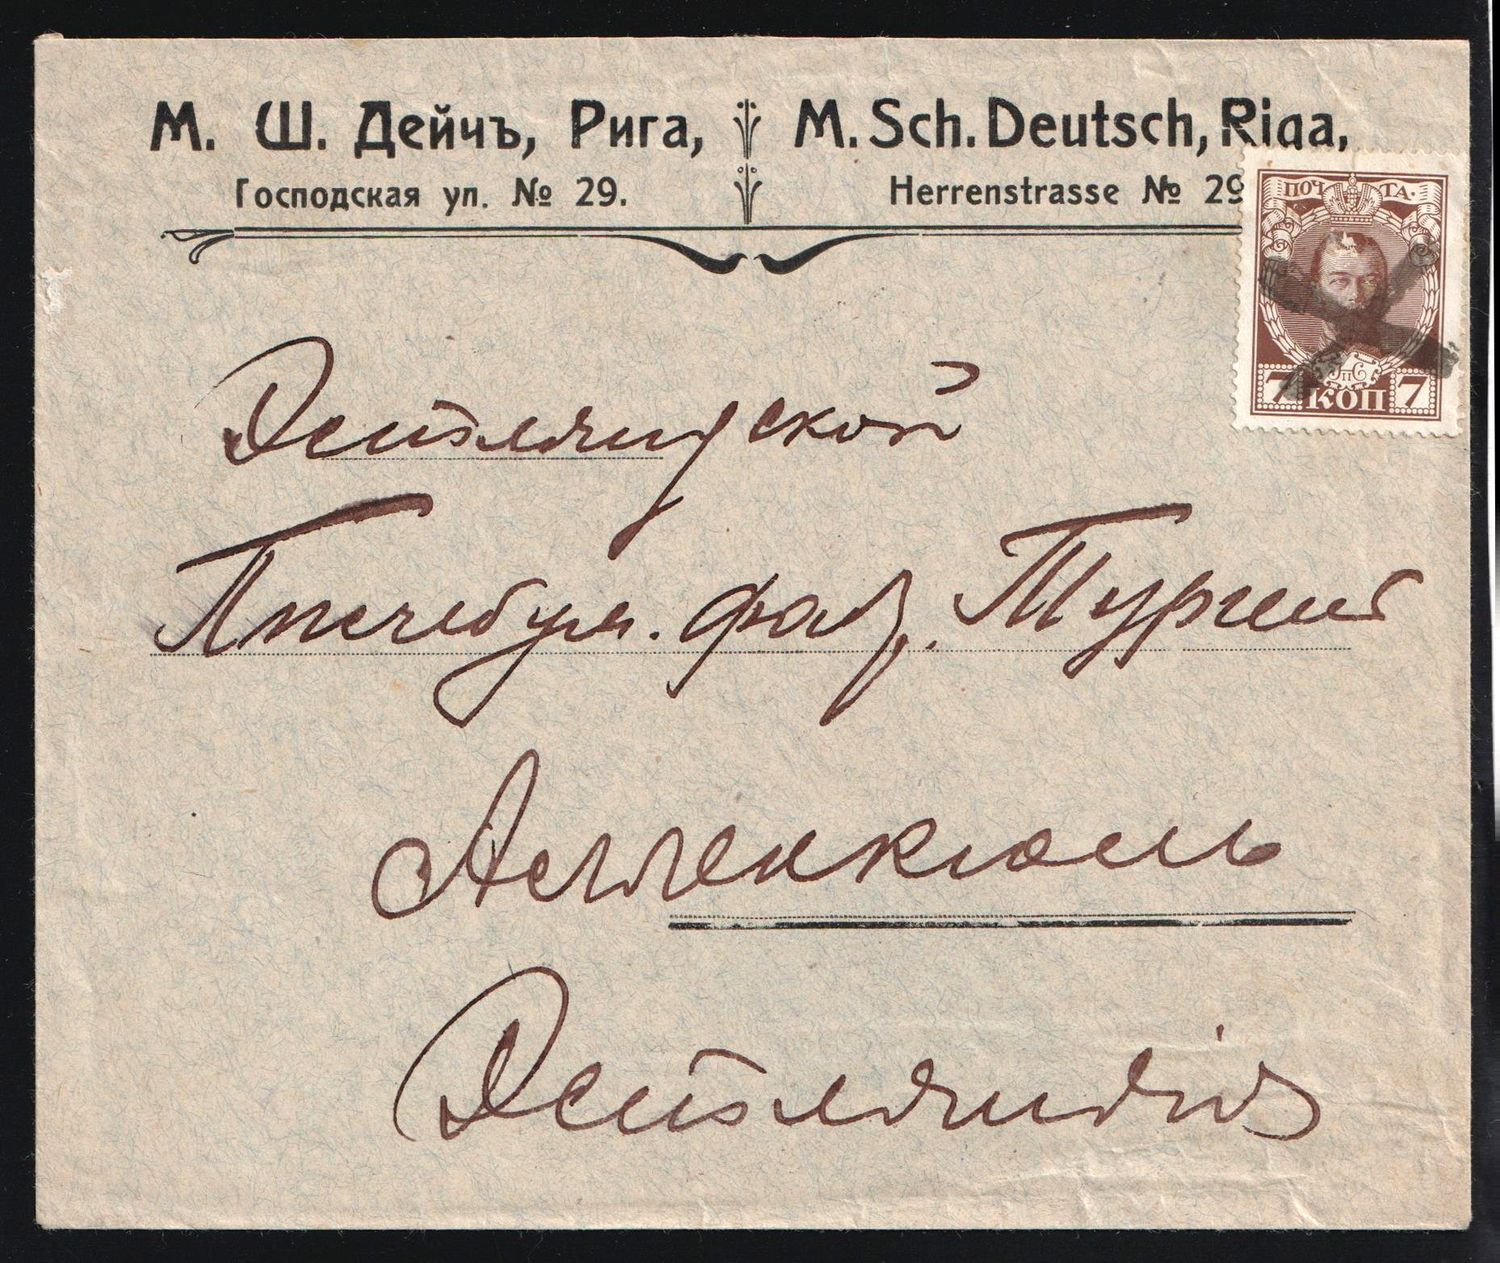 М. Ш. Дейчъ, Рига,
Господская ул. № 29.
M. Sch. Deutsch, Riga,
Herrenstrasse № 29
ПОЧТА.
7 КОП 7
Эстляндской
Писчебум. фаб. Тургель
Алленкюль
Эстляндія